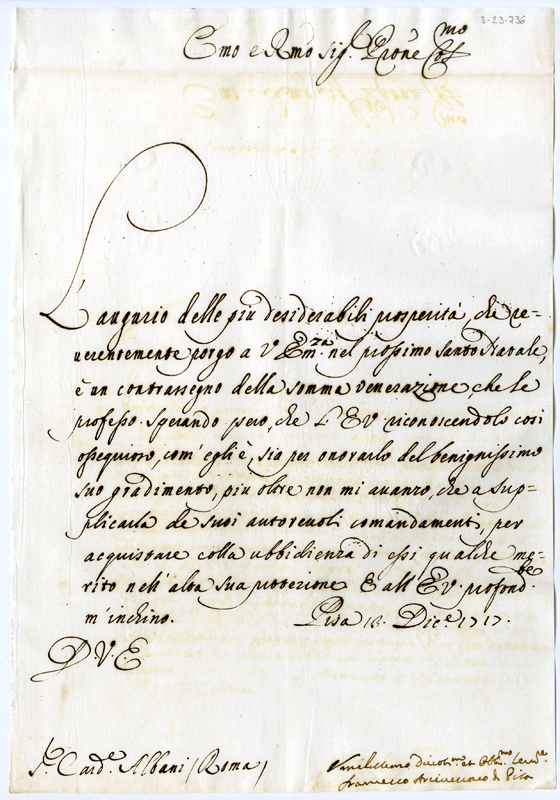 3-23-736
Emo e Rmo Sig.r Prone Col.mo
L'augurio delle più desiderabili prosperità, che re=
verentemente porgo a V. Em.za nel prossimo Santo Natale,
è un contrassegno della somma venerazione, che le
professo. Sperando però, che L'E V riconoscendolo così
ossequioso, com'egli è, sia per onorarlo del benignissimo
suo gradimento, più oltre non mi avanzo, che a sup=
plicarla de suoi autorevoli comandamenti, per
acquistare colla ubbidienza di essi qualche me=
rito nell'alta sua protezione E all'E V. profond.te
m'inchino. Pisa 18. Dic.e 1717.
D. V. E
S.r Card.e Albani (Roma)
Umilissimo Divot.mo et Obb.mo Serv.re
Francesco Arcivescovo di Pisa